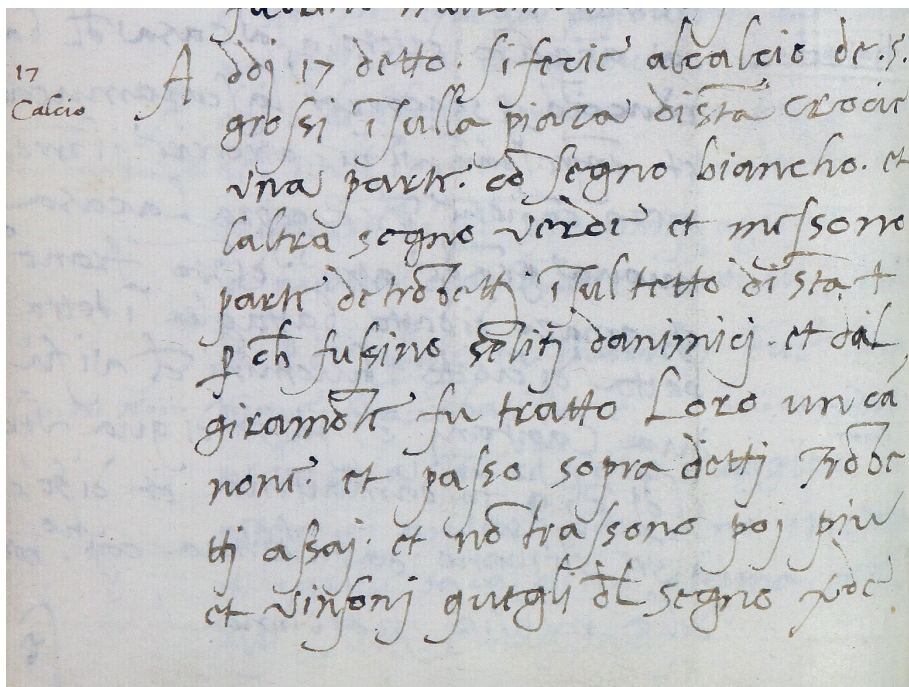 17
Calcio
Addj 17 detto. si fecie alcalcio de .s.
grossi ī sulla piaza di sta crocie
vna parte. cō segno biancho. et
laltra segno verde et messono
parte de trōbettj ī sul tetto di sta +
p ch fussino sētitj danimicj. et dal
giramōte fu tratto Loro un ca
none. et passo sopra dettj Trōbe
ttj assaj. et nō trassono poj piu
et vinsonj quegli dl segno vde